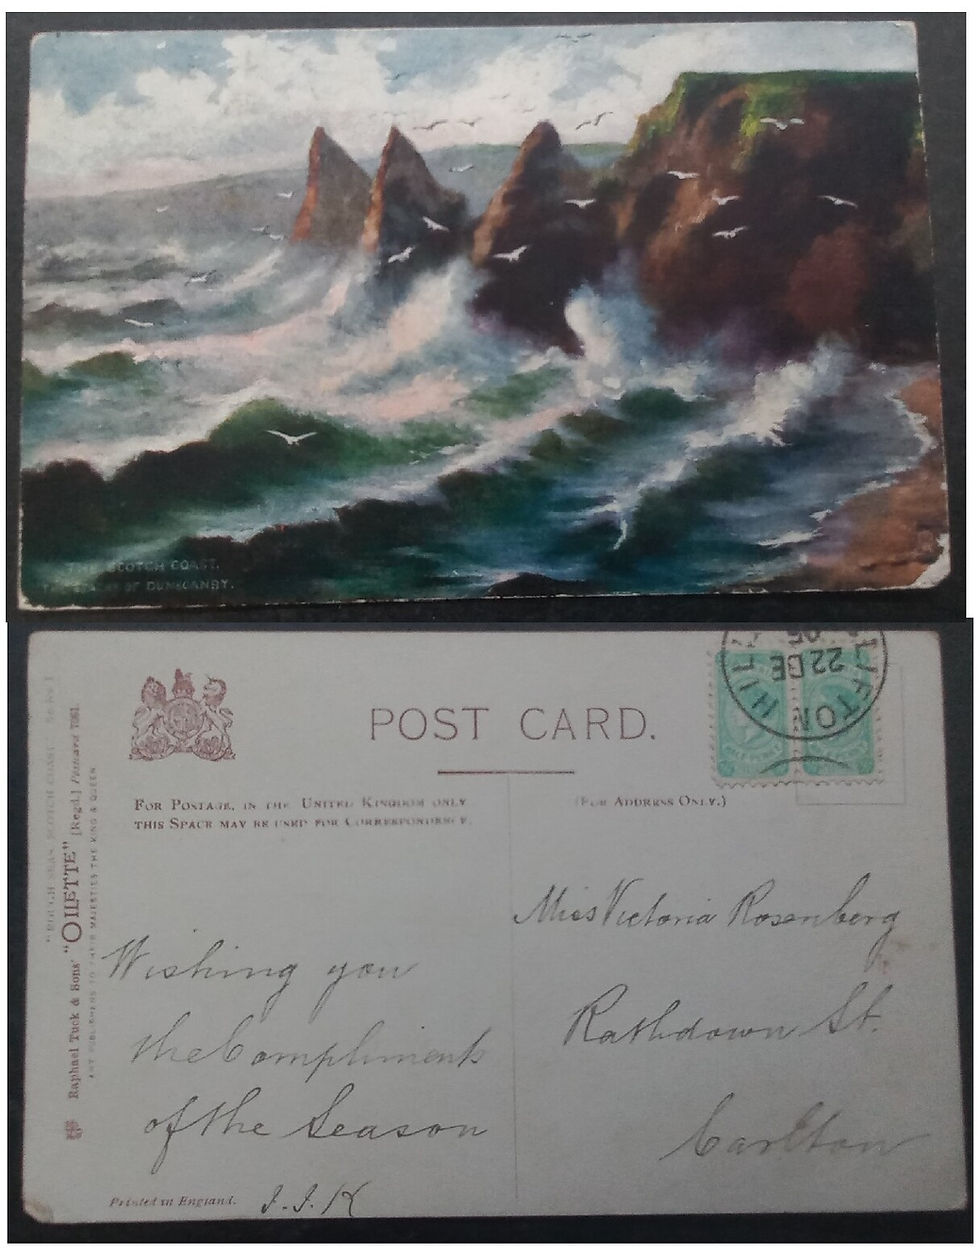 THE SCOTCH COAST.
OF DUNSCANBY.
POST CARD.
FOR POSTAGE, IN THE UNITED KINGDOM ONLY
THIS SPACE MAY BE USED FOR CORRESPONDENCE.
(FOR ADDRESS ONLY.)
CLIFTON HILL
22 DE
05
"ROUGH SEAS, SCOTCH COAST"
Raphael Tuck & Sons' "OILETTE" [Regd.] Postcard 7261.
ART PUBLISHERS TO THEIR MAJESTIES THE KING & QUEEN.
Miss Victoria Rosenberg
Rathdown St.
Carlton
Wishing you
the Compliments
of the Season
J.J.K
Printed in England.